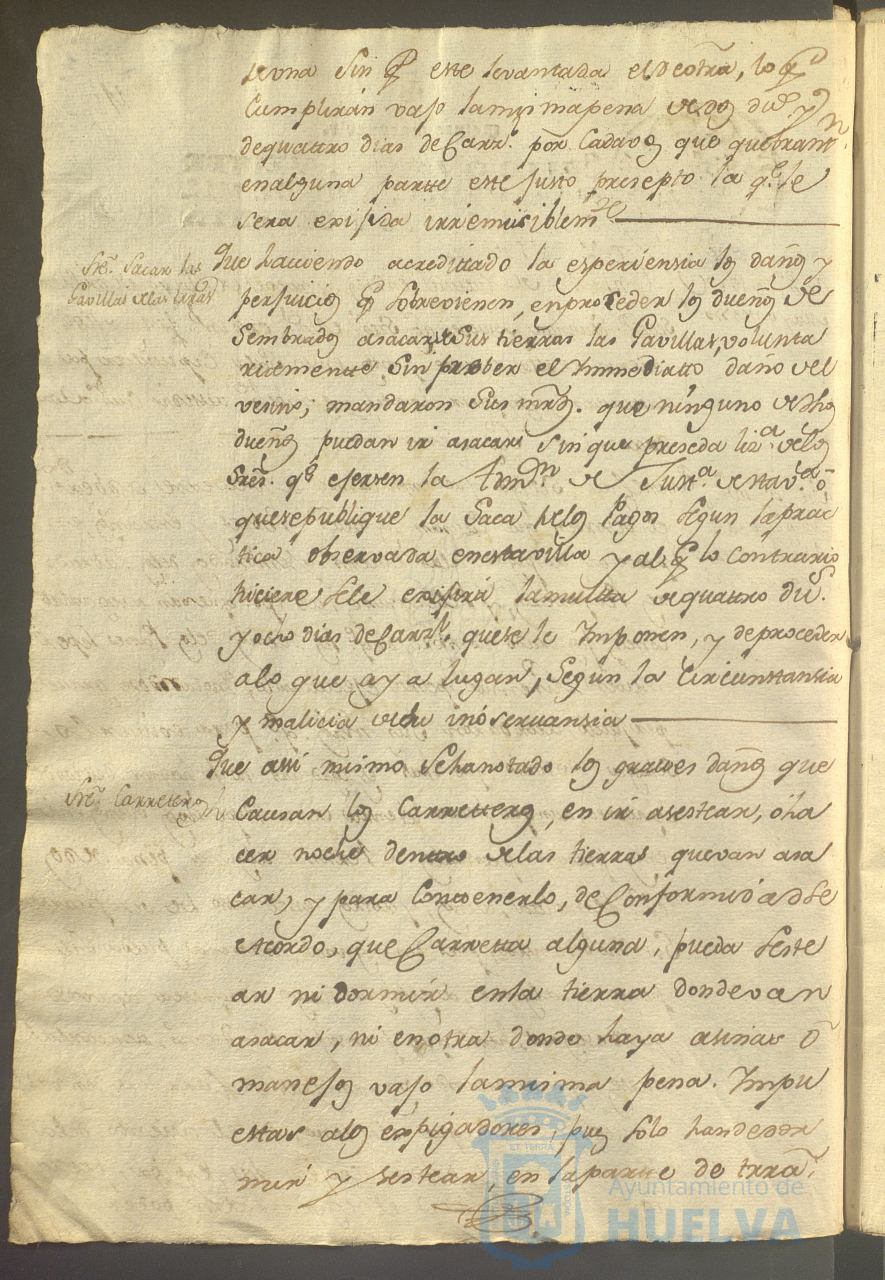 de una sin q.e este levantada el de otra, lo q.e
Cumpliran vajo la misma pena de dos du.s y
de quattro dias de Carz.l por Cada vos que quebrant.n
en alguna partte este justo presepto la q.e le
sera exijida irremisiblem.te
Sre. Sacar las
Gavillas de las tierras
Que haviendo acredittado la esperiensia los daños y
perjuicios q.e sobrevienen, en proceder los dueños de
Sembrados a sacar de sus tierras las Gavillas, volunta
riamentte sin prober el Ymmediatto daño del
vesino; mandaron sus mrds. que ninguno de dhos
dueños puedan ir a sacar sin que preseda liz.a de los
Sres. q.e ejersen la Admon de Just.a de esta v.a o
que se publique la Saca de los Pagos segun la prac
tica observada en esta villa y al q.e lo contrario
hiciere se le exijirá la multta de quattro du.s
y ocho dias de Carz.l que se le Ymponen, y de proceder
a lo que aya lugar, segun la Circunstansia
y malicia de la inoservansia
Sre. Carretteros
Que assi mismo se ha notado los graves daños que
Causan los Carretteros, en ir a sestear, o ha
cer noche dentro de las tierras que van a sa
car, y para Conttenerlo, de Conformidad se
acordo, que Carretta alguna, pueda seste
ar ni dormir en la tierra donde van
a sacar, ni en otra donde haya asinas o
manojos vajo la misma pena. Ympu
estas a los espigadores, pues solo han de dor
mir y sestear, en la partte de trra.
Ayuntamiento de
HUELVA